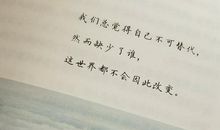 我们总觉得自己不可替代，
然而缺少了谁，
这世界都不会因此改变。